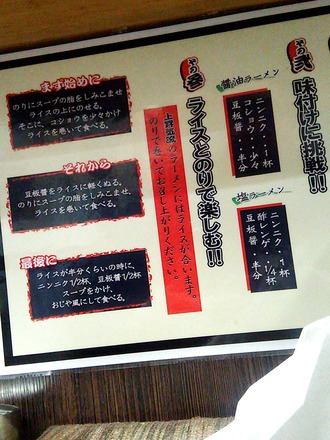 その弐
味付けに挑戦!!
醤油ラーメン
ニンニク・1杯
コショウ・少々
豆板醤・半分
塩ラーメン
ニンニク・1杯
酢レンゲ・1/4杯
豆板醤・半分
その参
ライスとのりで楽しむ!!
のラーメンにはライスが合います。
のりで巻いてお召し上がりください。
まず始めに
のりにスープの脂をしみこませ
ライスの上にのせる。
そこに、コショウを少々かけ
ライスを巻いて食べる。
それから
豆板醤をライスに軽くぬる。
のりにスープの脂をしみこませ、
ライスを巻いて食べる。
最後に
ライスが半分くらいの時に、
ニンニク1/2杯、豆板醤1/2杯
スープをかけ、
おじや風にして食べる。